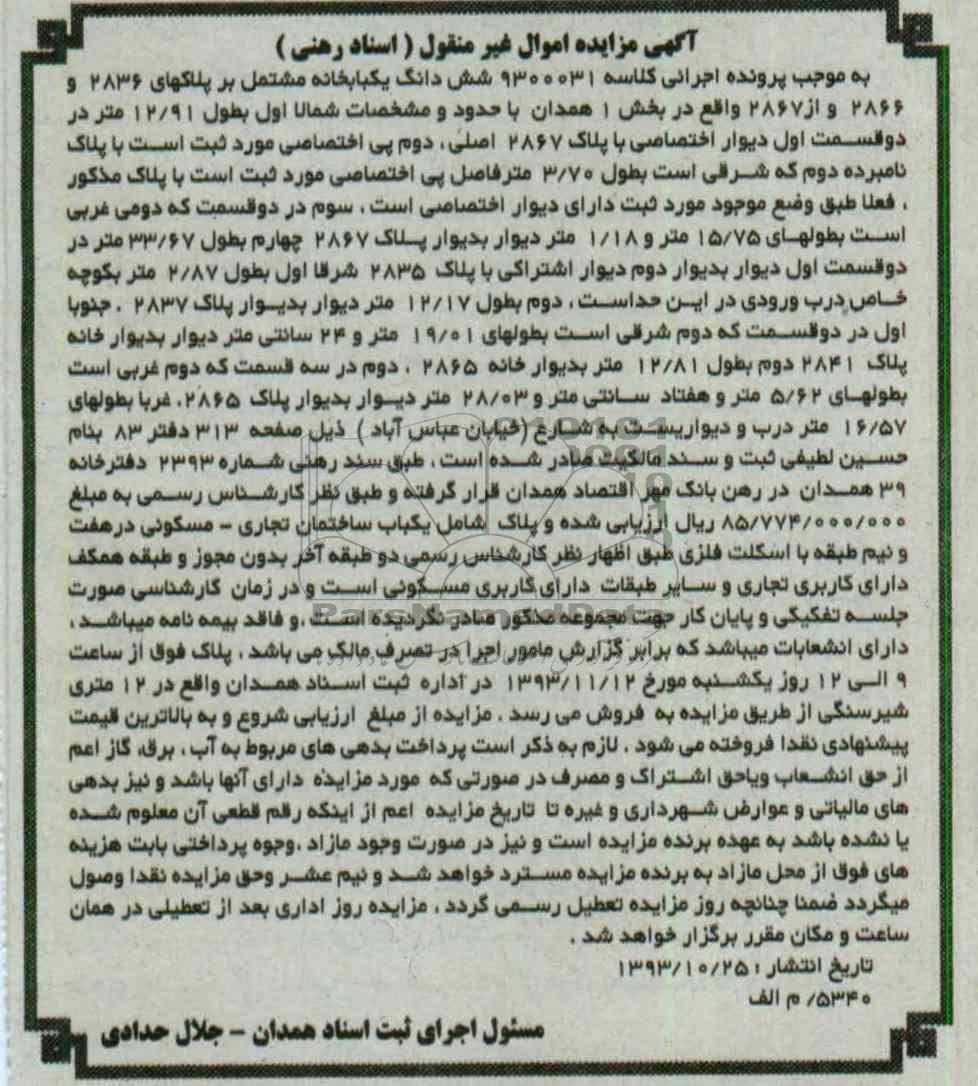 آگهی مزایده اموال غیر منقول ( اسناد رهنی )
به موجب پرونده اجرائی کلاسه ۹۳۰۰۰۳۱ شش دانگ یکبابخانه مشتمل بر پلاکهای ۲۸۳۶ و
۲۸۶۶ و از۲۸۶۷ واقع در بخش ۱ همدان با حدود و مشخصات شمالا اول بطول ۱۲/۹۱ متر در
دوقسمت اول دیوار اختصاصی با پلاک ۲۸۶۷ اصلی، دوم پی اختصاصی مورد ثبت است با پلاک
نامبرده دوم که شرقی است بطول ۳/۷۰ مترفاصل پی اختصاصی مورد ثبت است با پلاک مذکور
، فعلا طبق وضع موجود مورد ثبت دارای دیوار اختصاصی است ، سوم در دوقسمت که دومی غربی
است بطولهای ۱۵/۷۵ متر و ۱/۱۸ متر دیوار بدیوار پلاک ۲۸۶۷ چهارم بطول ۳۳/۶۷ متر در
دوقسمت اول دیوار بدیوار دوم دیوار اشتراکی با پلاک ۲۸۳۵ شرقا اول بطول ۲/۸۷ متر بکوچه
خاص درب ورودی در این حداست ، دوم بطول ۱۲/۱۷ متر دیوار بدیوار پلاک ۲۸۳۷ . جنوبا
اول در دوقسمت که دوم شرقی است بطولهای ۱۹/۰۱ متر و ۲۴ سانتی متر دیوار بدیوار خانه
پلاک ۲۸۴۱ دوم بطول ۱۲/۸۱ متر بدیوار خانه ۲۸۶۵ ، دوم در سه قسمت که دوم غربی است
بطولهای ۵/۶۲ متر و هفتاد سانتی متر و ۲۸/۰۳ متر دیوار بدیوار پلاک ۲۸۶۵، غربا بطولهای
۱۶/۵۷ متر درب و دیواریست به شارع (خیابان عباس آباد ) ذیل صفحه ۳۱۳ دفتر ۸۳ بنام
حسین لطیفی ثبت و سند مالکیت صادر شده است ، طبق سند رهنی شماره ۲۳۹۳ دفترخانه
۳۹ همدان در رهن بانک مهر اقتصاد همدان قرار گرفته و طبق نظر کارشناس رسمی به مبلغ
۸۵/۷۷۴/۰۰۰/۰۰۰ ریال ارزیابی شده و پلاک شامل یکباب ساختمان تجاری – مسکونی درهفت
و نیم طبقه با اسکلت فلزی طبق اظهار نظر کارشناس رسمی دو طبقه آخر بدون مجوز و طبقه همکف
دارای کاربری تجاری و سایر طبقات دارای کاربری مسکونی است و در زمان کارشناسی صورت
جلسه تفکیکی و پایان کار جهت مجموعه مذکور صادر نگردیده است ،و فاقد بیمه نامه میباشد ،
دارای انشعابات میباشد که برابر گزارش مامور اجرا در تصرف مالک می باشد ، پلاک فوق از ساعت
۹ الی ۱۲ روز یکشنبه مورخ ۱۳۹۳/۱۱/۱۲ در اداره ثبت اسناد همدان واقع در ۱۲ متری
شیرسنگی از طریق مزایده به فروش می رسد ، مزایده از مبلغ ارزیابی شروع و به بالاترین قیمت
پیشنهادی نقدا فروخته می شود . لازم به ذکر است پرداخت بدهی های مربوط به آب ، برق، گاز اعم
از حق انشعاب ویاحق اشتراک و مصرف در صورتی که مورد مزایده دارای آنها باشد و نیز بدهی
های مالیاتی و عوارض شهرداری و غیره تا تاریخ مزایده اعم از اینکه رقم قطعی آن معلوم شده
یا نشده باشد به عهده برنده مزایده است و نیز در صورت وجود مازاد ،وجوه پرداختی بابت هزینه
های فوق از محل مازاد به برنده مزایده مسترد خواهد شد و نیم عشر وحق مزایده نقدا وصول
میگردد ضمنا چنانچه روز مزایده تعطیل رسمی گردد ، مزایده روز اداری بعد از تعطیلی در همان
ساعت و مکان مقرر برگزار خواهد شد .
تاریخ انتشار : ۱۳۹۳/۱۰/۲۵
۵۳۴۰/ م الف
مسئول اجرای ثبت اسناد همدان – جلال حدادی
ParsNamadData